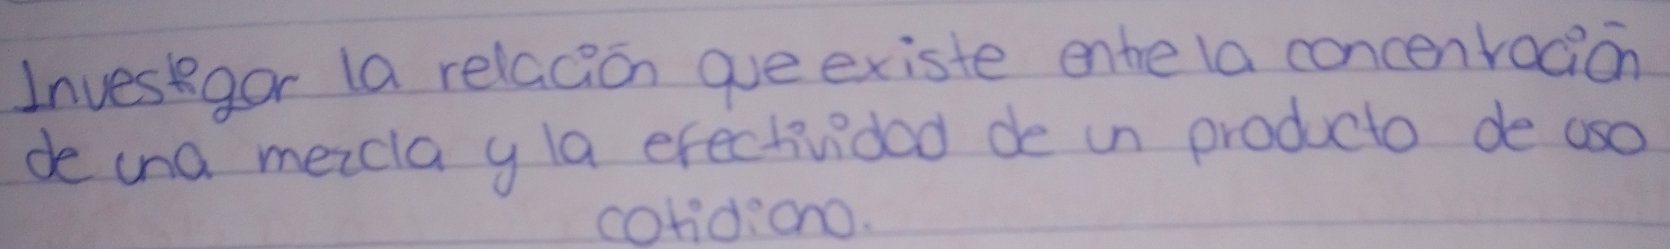 Investigar la relación que existe entre la concentración
de una mezcla y la efectividad de un producto de uso
cotidiano.